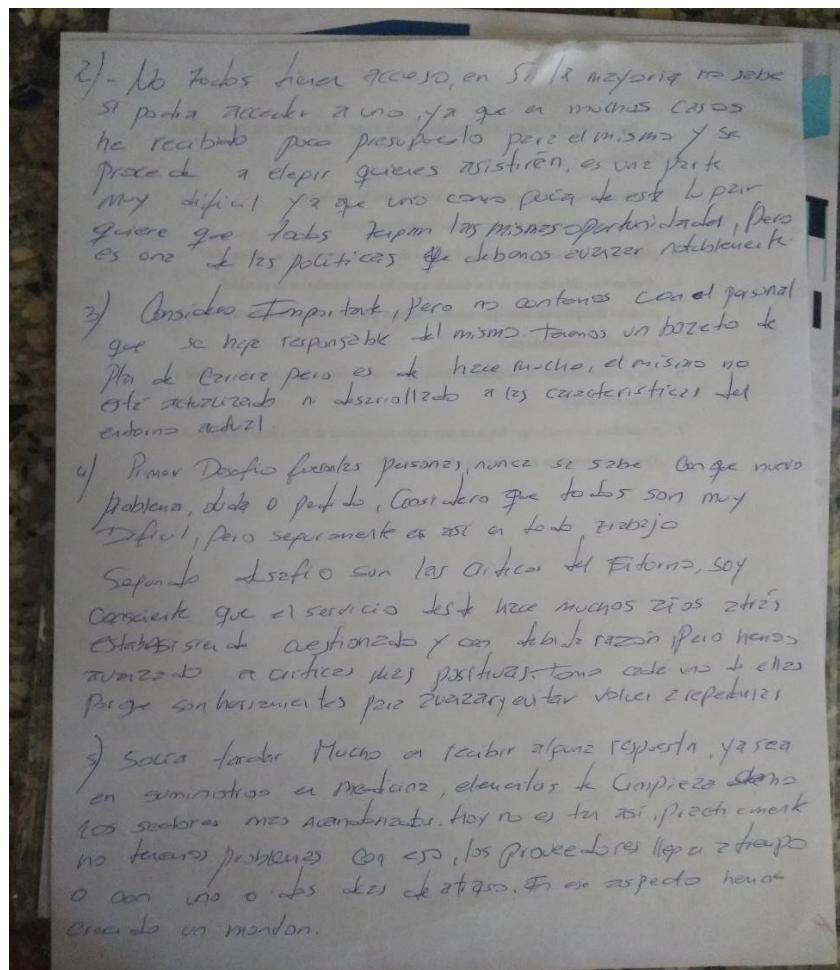 2)- No todos tienen acceso, en sí la mayoría no sabe
si podra acceder a uno, ya que en muchos casos
he recibido poco presupuesto para el mismo y se
procede a elegir quienes asistirán, es una parte
muy dificil ya que uno como de este Lugar
quiere que todos tengan las mismas oportunidades, Pero
es una de las politicas que debemos avanzar notablemente.
3) Considero Importante, Pero no contamos con el personal
que se haga responsable del mismo tenemos un bozeto de
Plan de Carrera pero es de hace mucho, el mismo no
está actualizado ni desarrollado a las caracteristicas del
entorno actual.
4) Primer Desafio fueron las personas, nunca se sabe con que nuevo
problema, duda o pedido, Considero que todos son muy
Dificil, Pero seguramente es así en todo trabajo
Segundo desafio son las criticas del Entorno, soy
Consciente que el servicio desde hace muchos años atrás
estaba siendo cuestionado y con debida razón, Pero hemos
avanzado a criticas mas positivas. tomo cada una de ellas
Porque son herramientas para avanzar y evitar volver a repetirlas
5) Solia tardar Mucho en recibir alguna respuesta, ya sea
en suministros en Medicina, elementos de Limpieza
los sectores mas. Hoy no es tan así, practicament
no tenemos problemas con eso, los proveedores llegan a tiempo
o con uno o dos dias de atraso. En ese aspecto hemos
crecido un monton.